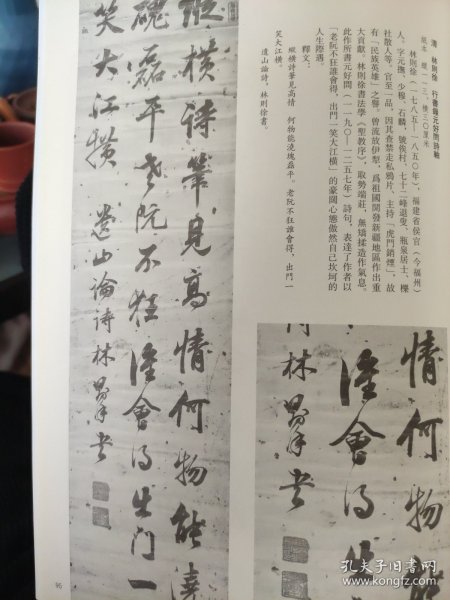 清 林則徐 行書錄元好問詩軸
紙本 縱一一三、橫三〇厘米
林則徐（一七八五—一八五〇年），福建省侯官（今福州）
人。字元撫、少穆、石麟，號俟村、七十二峰退叟、瓶泉居士、櫟
社散人等。官至一品，因其查禁走私鴉片，主持「虎門銷煙」，故
有「民族英雄」之譽。曾流放伊犁，爲祖國開發新疆地區作出重
大貢獻。林則徐書法學《聖教序》，取勢端莊，無矯揉造作氣息。
此作所書元好問（一一九〇—一二五七年）詩句，表達了作者以
「老阮不狂誰會得，出門一笑大江橫」的豪闊心懷傲然自己坎坷的
人生際遇。
釋文：
縱橫詩筆見高情 何物能澆塊磊平。老阮不狂誰會得，出門一
笑大江橫。
遺山論詩。林則徐書。
縱橫詩筆見高情何物能澆
磈磊平老阮不狂誰會得出門一
笑大江橫 遺山論詩林則徐書
情何物能
誰會得出
詩林則徐書
95
孔夫子旧书网
www.kongfz.com